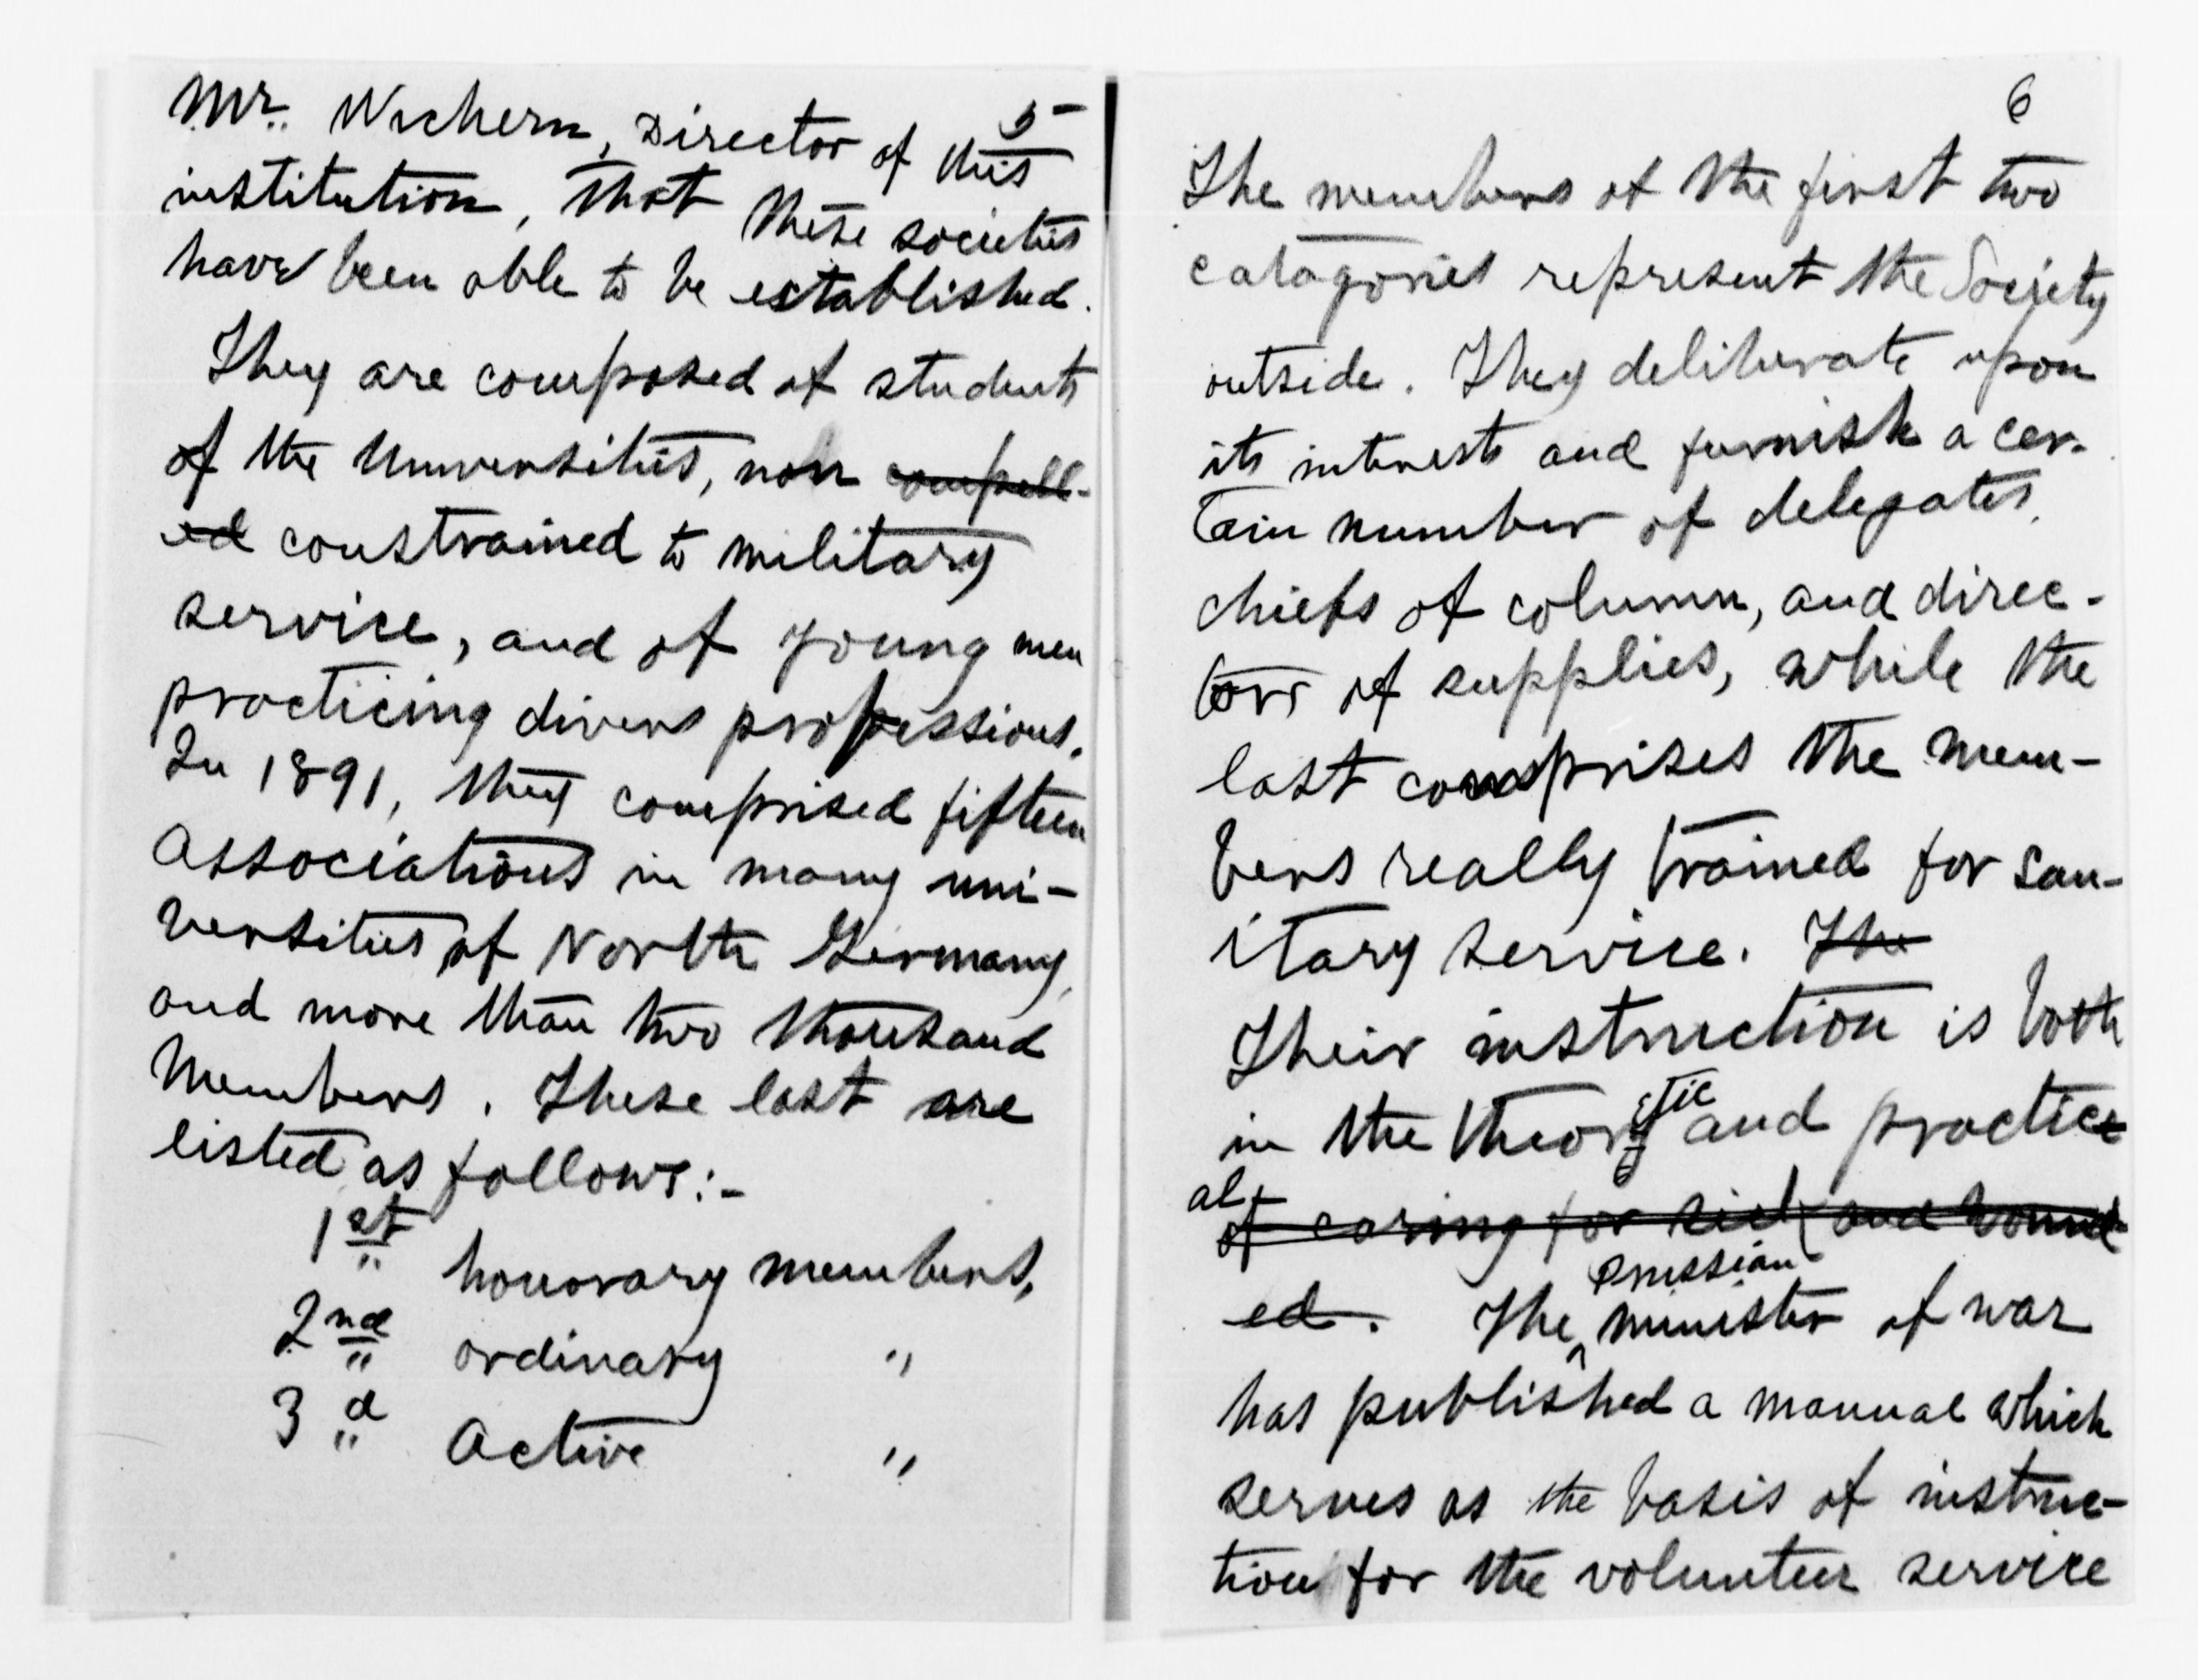 5
Mr. Wichern, Director of this
institution, that these societies
have been able to be established.
They are composed of students
of the Universities, non compell-
ed constrained to military
service, and of young men
practicing divers professions.
In 1891, they comprised fifteen
Associations in many uni-
versities of North Germany,
and more than two thousand
Members. These last are
listed as follows:-
1st honorary members,
2nd ordinary "
3d Active "
6
The members of the first two
catagories represent the Society
outside. They deliberate upon
its interests and furnish a cer-
tain number of delegates,
chiefs of column, and direc-
tors of supplies, while the
last comprises the mem-
bers really trained for san-
itary service. The
Their instruction is both
in the theoryetic and practice
al
of caring for sick and wound-
ed. The Prussian minister of war
has published a manual which
serves as the basis of instruc-
tion for the volunteer service